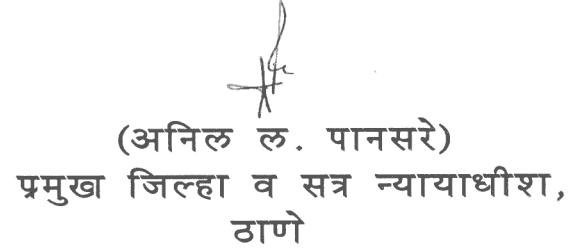 (अनिल ल. पानसरे)
प्रमुख जिल्हा व सत्र न्यायाधीश,
ठाणे